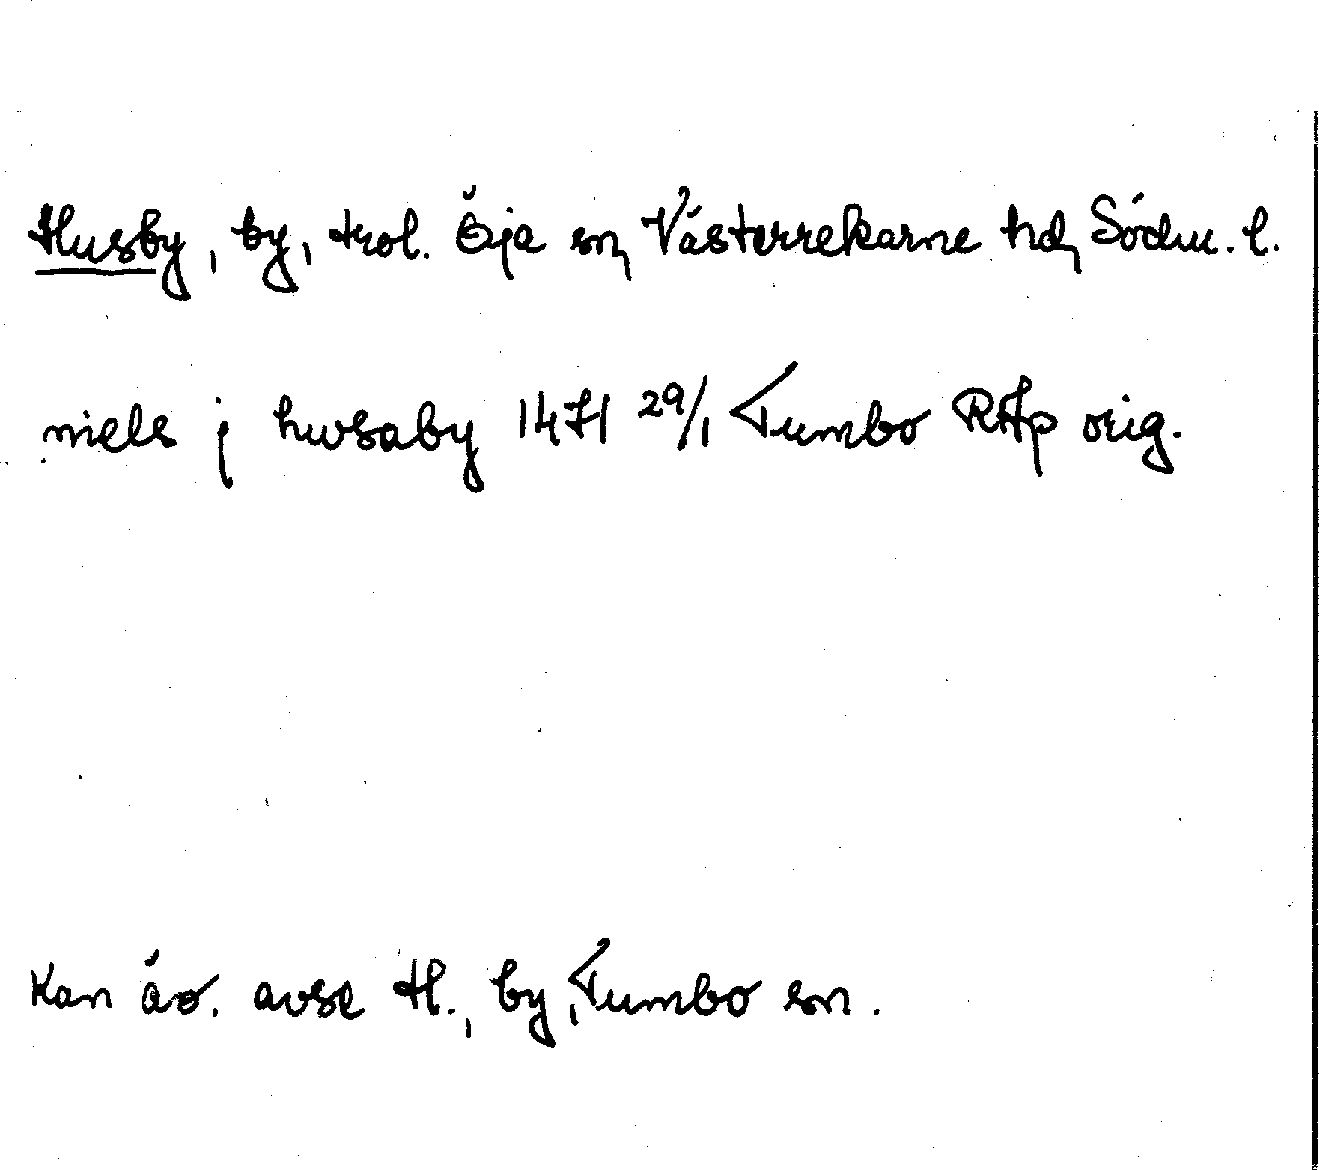 Husby, by, trol. Öja sn, Västerrekarne hd, Södm. l.
niels j hwsaby 1471 29/1 Tumbo RAp orig.
Kan äv. avse H., by, Tumbo sn.